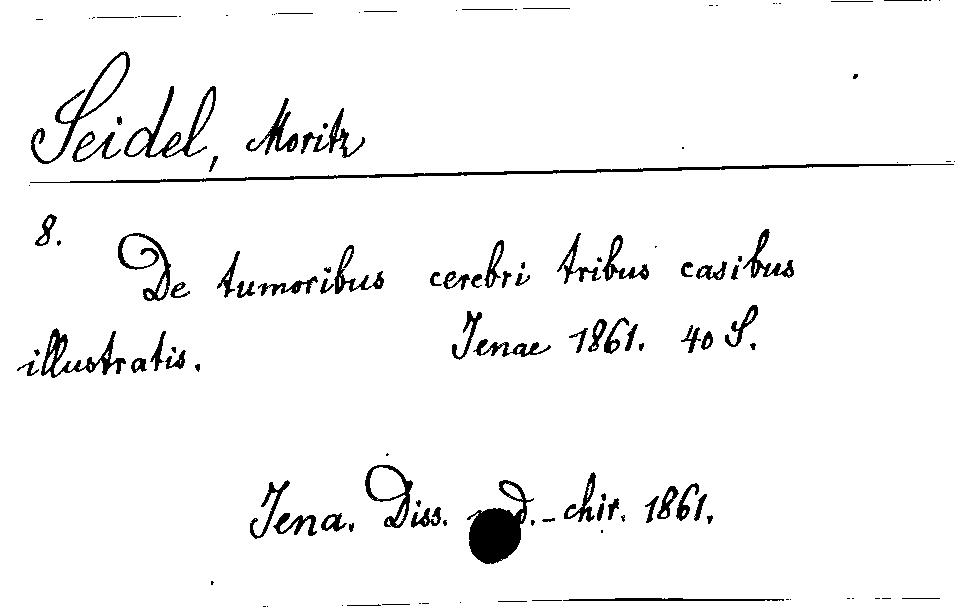 Seidel, Moritz
8.
De tumoribus cerebri tribus casibus
illustratis. Jenae 1861. 40 S.
Jena. Diss. med.-chir. 1861.